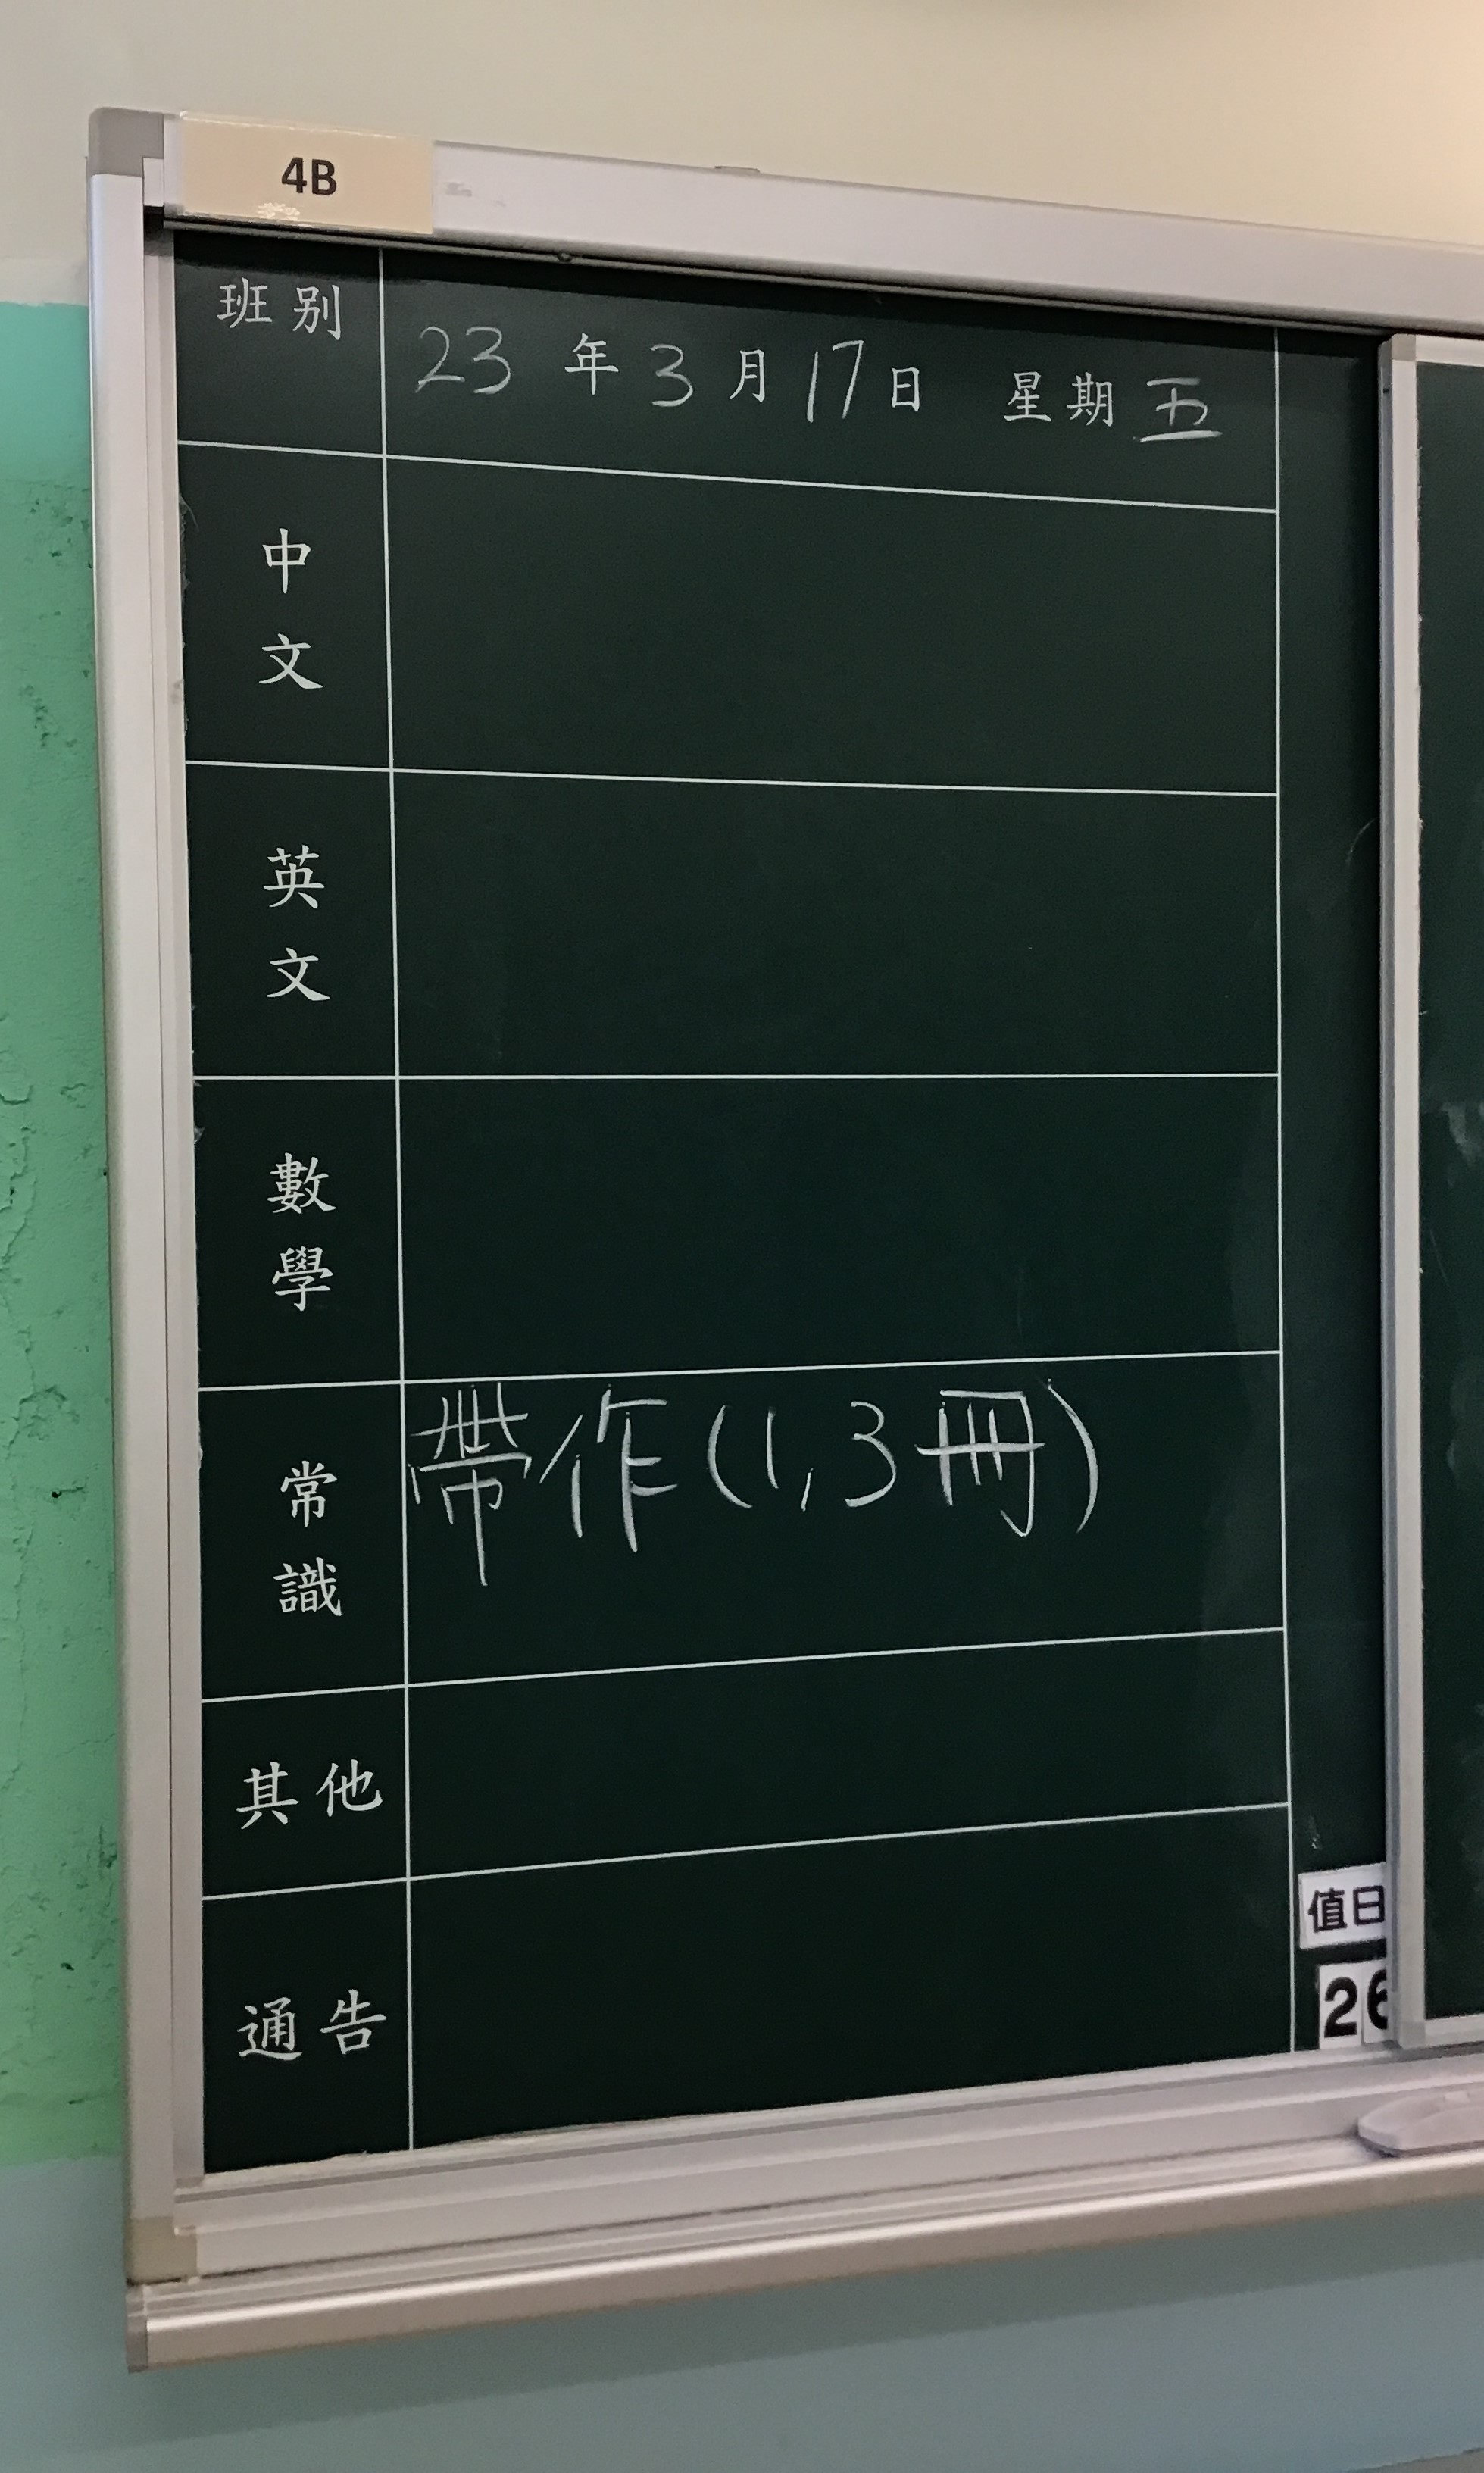 4B
班別 23年3月17日 星期五
中文
英文
數學
常識 帶作(1,3冊)
其他
通告
值日
26